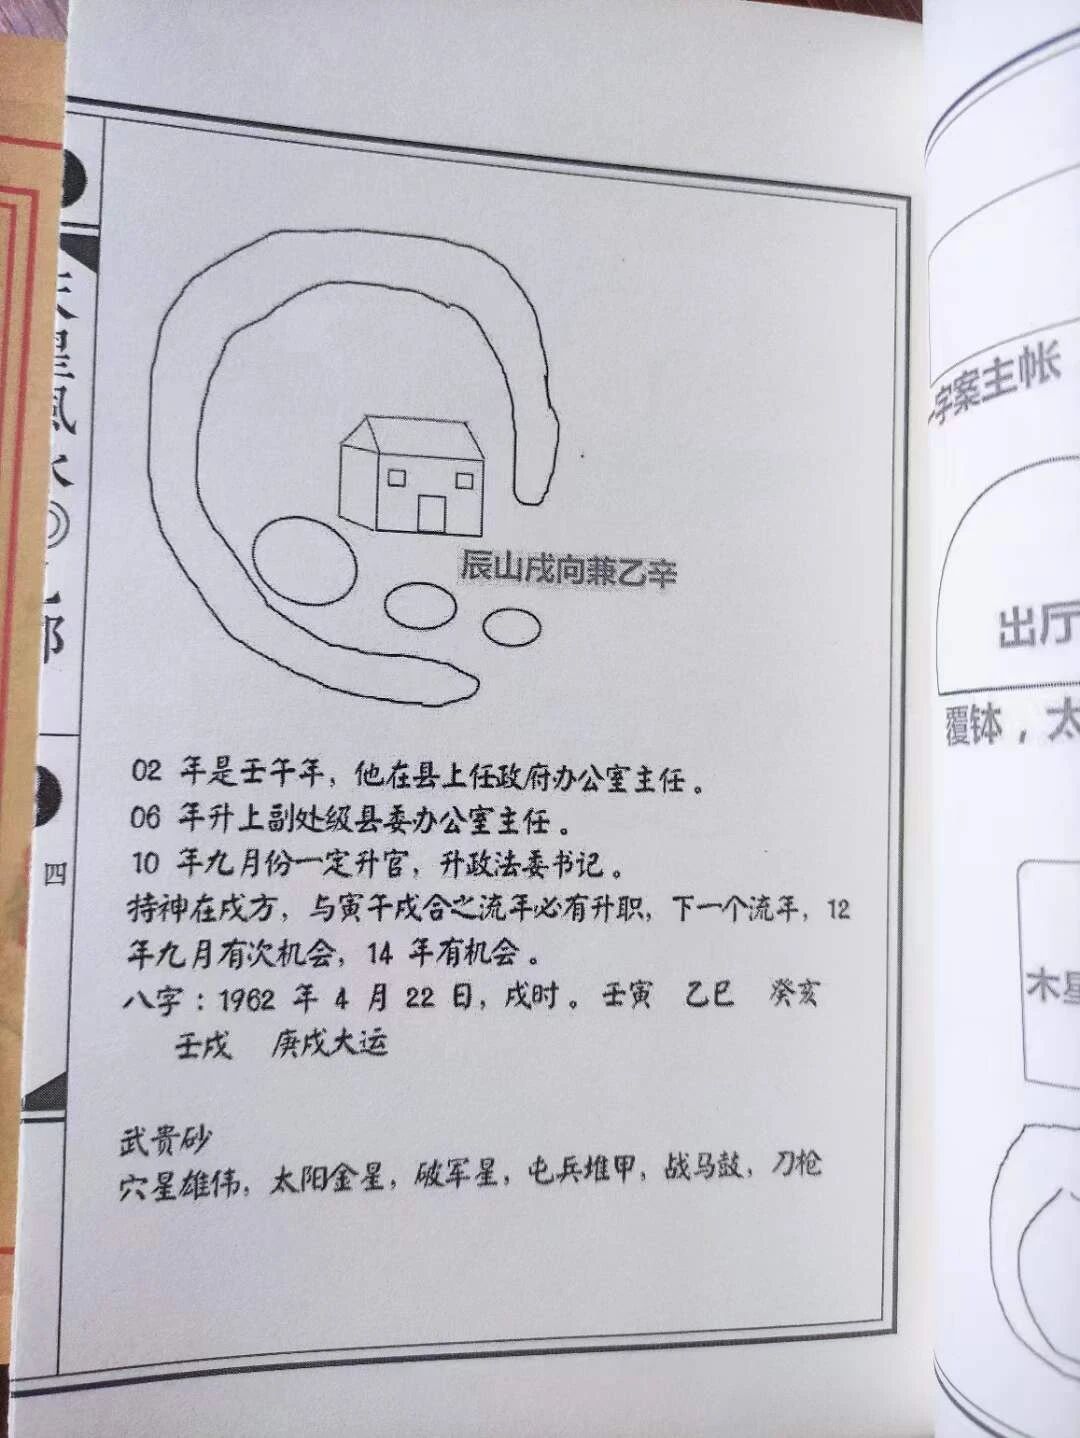 天星風水
四
辰山戌向兼乙辛
02 年是壬午年，他在县上任政府办公室主任。
06 年升上副处级县委办公室主任。
10 年九月份一定升官，升政法委书记。
持神在戌方，与寅午戌合之流年必有升职，下一个流年，12
年九月有次机会，14 年有机会。
八字：1962 年 4 月 22 日，戌时。壬寅 乙巳 癸亥
壬戌 庚戌大运
武贵砂
穴星雄伟，太阳金星，破军星，屯兵堆甲，战马鼓，刀枪
字案主帐
出厅
覆钵，太
木星